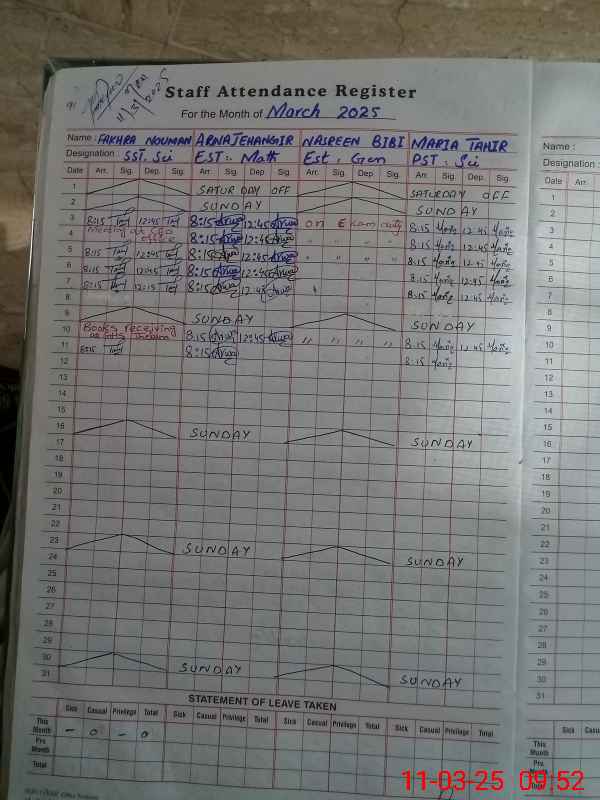 11/3/2025
Staff Attendance Register
For the Month of March 2025
Name : FAKHRA NOUMAN ARNAJEHANGIR NASREEN BIBI MARIA TAHIR Name :
Designation : SST. Sci EST:- Math Est, Gen PST: Sci Designation :
Date Arr. Sig. Dep. Sig. Arr. Sig. Dep. Sig. Arr. Sig. Dep. Sig. Arr. Sig. Dep. Sig. Date Arr.
1 SATURDAY OFF SATURDAY OFF 1
2 SUNDAY SUNDAY 2
3 8:15 12:45 8:15 12:45 on Exam duty 8:15 12:45 3
4 Meeting at CEO office 8:15 12:45 " " " " 8:15 12:45 4
5 8:15 12:45 8:15 12:45 " " " " 8:15 12:45 5
6 8:15 12:45 8:15 12:45 8:15 12:45 6
7 8:15 12:15 8:15 12:45 8:15 12:45 7
8 8
9 SUNDAY SUNDAY 9
10 Books receiving 8:15 12:45 " " " " 8:15 12:45 10
11 8:15 8:15 8:15 11
12 12
13 13
14 14
15 15
16 SUNDAY SUNDAY 16
17 17
18 18
19 19
20 20
21 21
22 22
23 SUNDAY SUNDAY 23
24 24
25 25
26 26
27 27
28 28
29 29
30 SUNDAY SUNDAY 30
31 31
STATEMENT OF LEAVE TAKEN
Sick Casual Privilege Total Sick Casual Privilege Total Sick Casual Privilege Total Sick Casual Privilege Total Sick Casual
This Month - 0 - 0 This Month
Prv. Month Prv. Month
Total Total
11-03-25 09:52